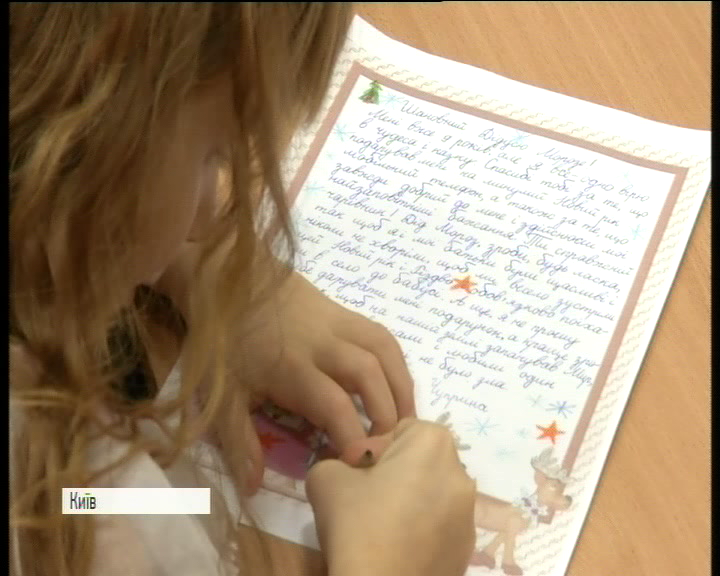 Шановний Дідусю Морозе!
Мені вже 9 років, але я все одно вірю
в чудеса і казку. Спасибі тобі за те, що
подарував мені на минулий Новий рік
мобільний телефон, а також за те, що
завжди добрий до мене і здійснюєш мої
найзаповітніші бажання. Ти справжній
чарівник! Дід Мороз, зроби, будь ласка,
так, щоб я і мої батьки були щасливі і
ніколи не хворіли, щоб ми весело зустріли
цей Новий рік і Різдво і обов'язково поїха-
в село до бабусі. А ще я не прошу
дарувати мені подарунок, а краще зро-
щоб на нашій землі запанував Мир,
і любили один
не було зла
Київ